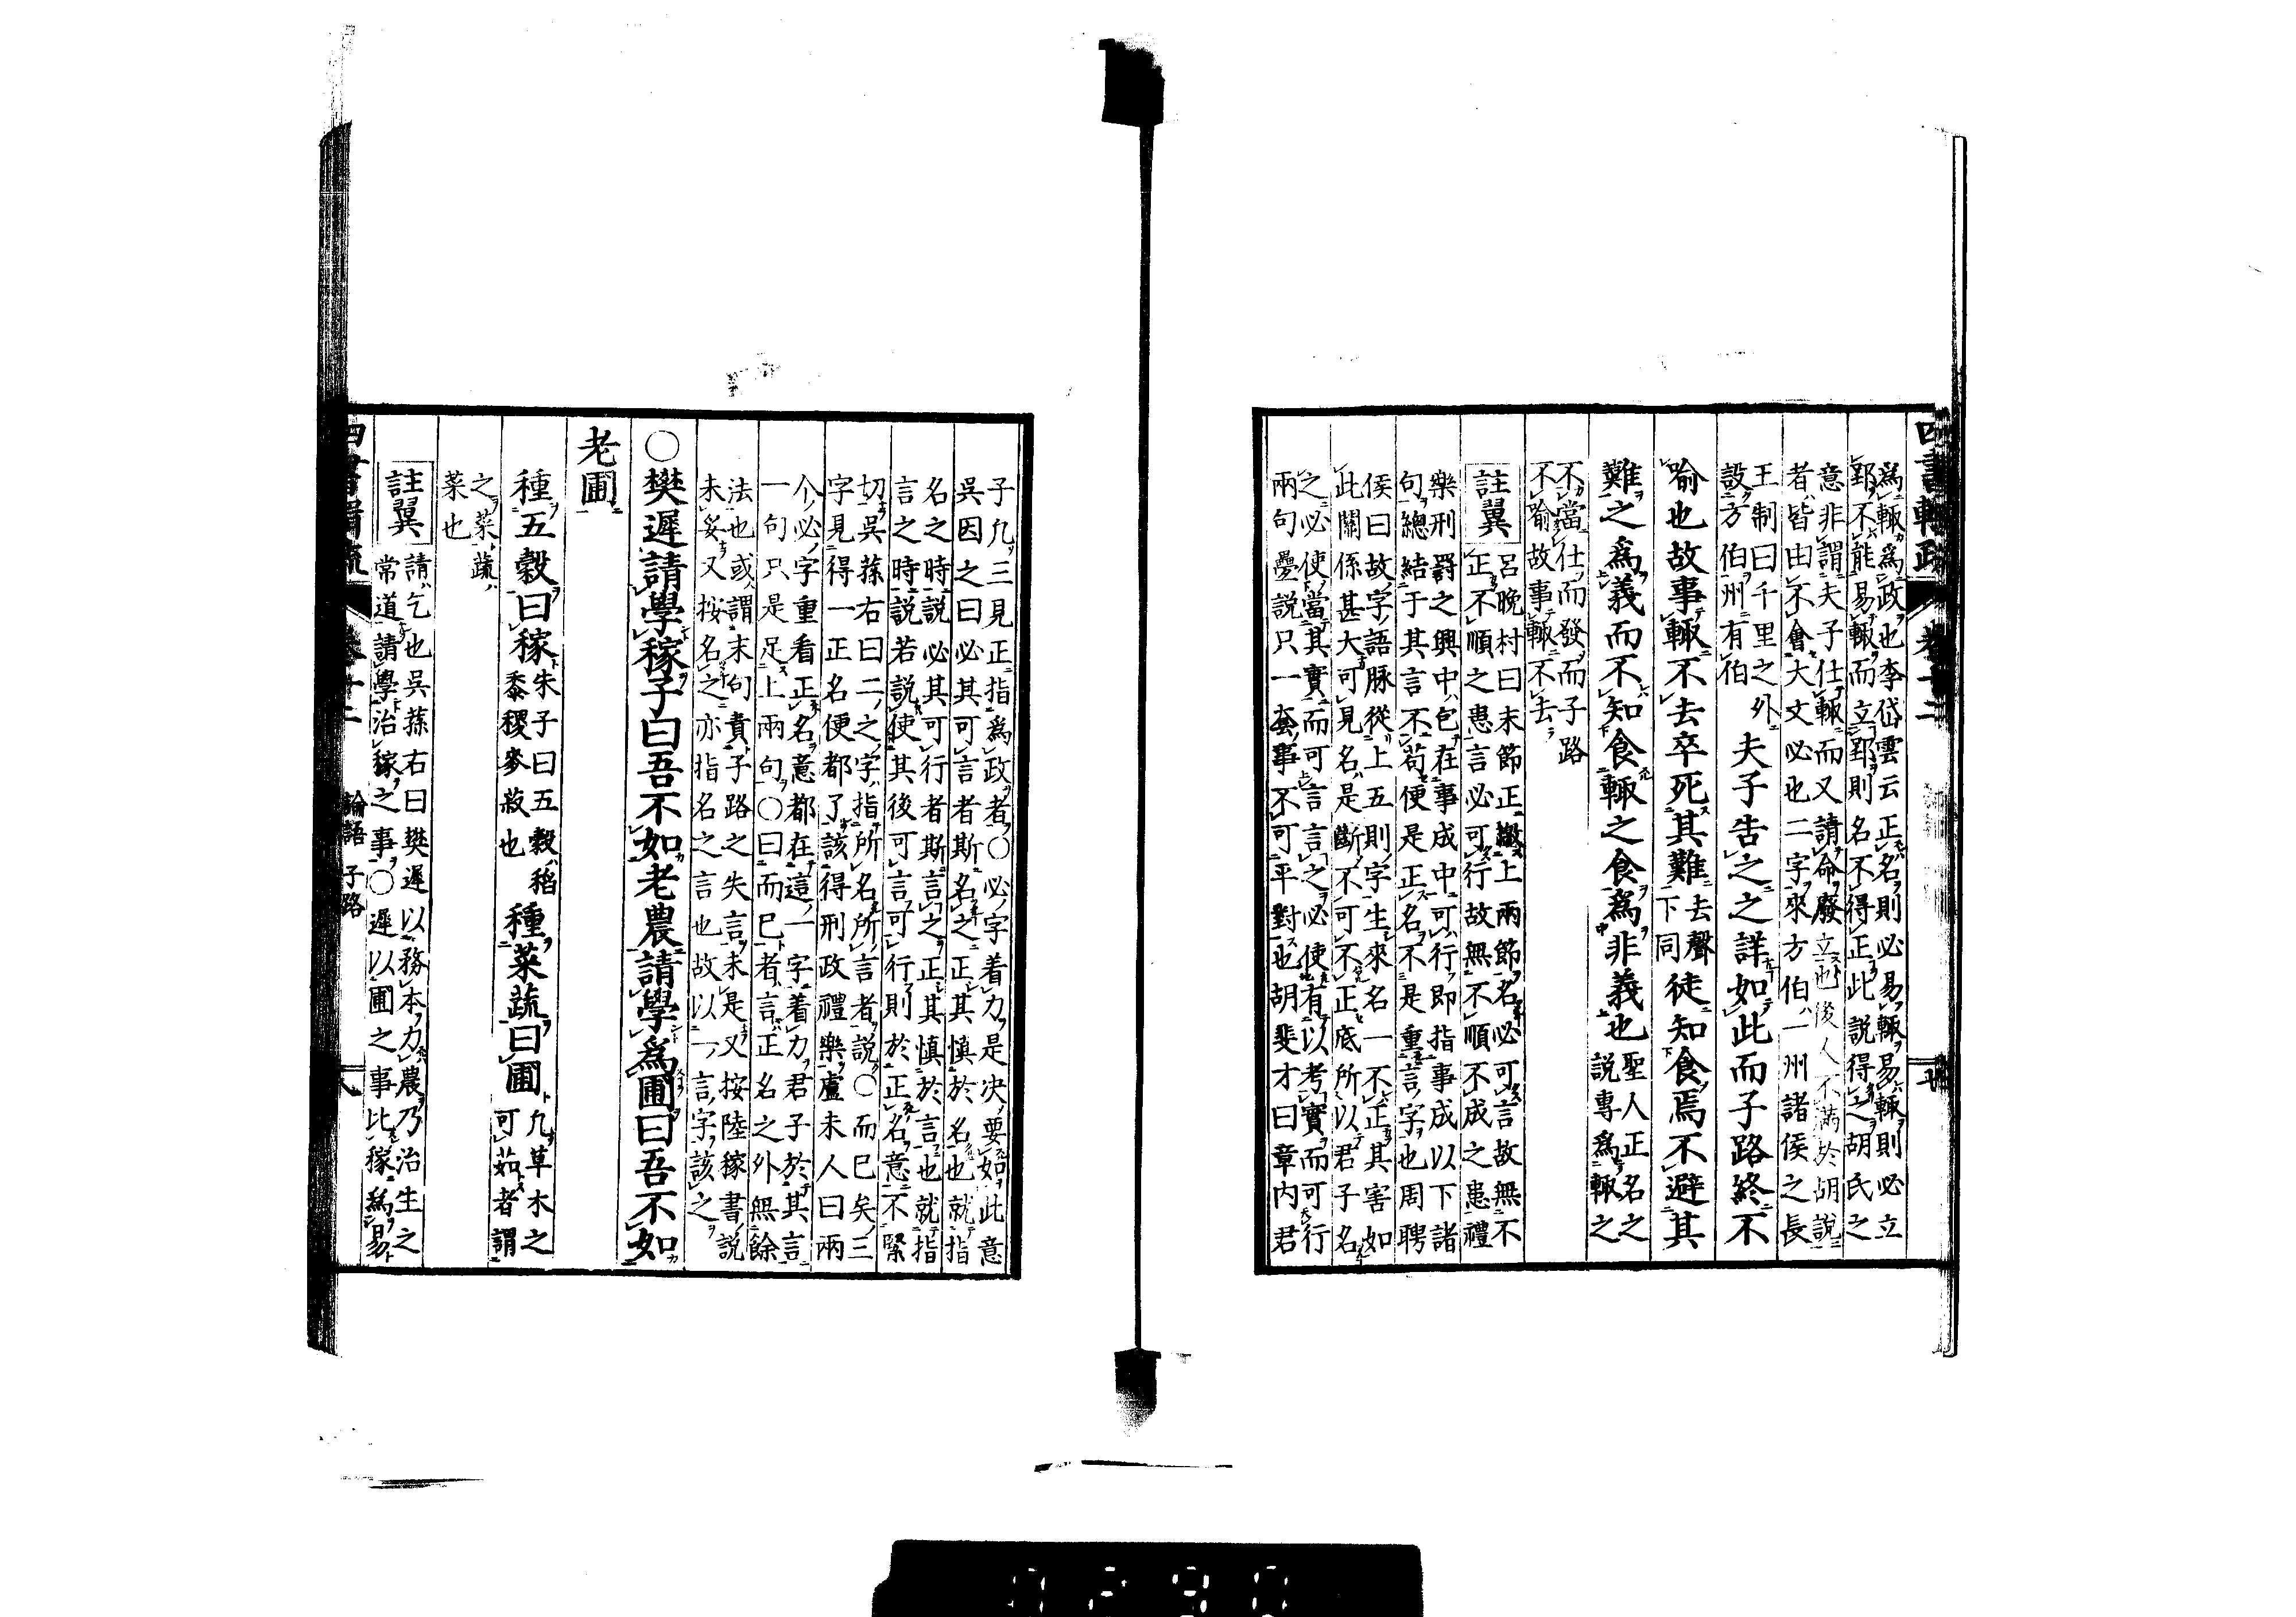 爲輙爲政也李岱雲云正名則必易輙易輙則必立
郢不能易輙而立郢則名不得正此說得之胡氏之
意非謂夫子仕輙而又請命廢立也後人不滿於胡說
者皆由不會大文必也二字來方伯一州諸侯之長
王制曰千里之外
設方伯州有伯
夫子告之之詳如此而子路終不
喻也故事輙不去卒死其難去聲下同徒知食焉不避其
難之爲義而不知食輙之食爲非義也聖人正名之說專爲輙之
不當仕而發而子路
不喻故事輙不去
註翼
呂晚村曰末節正繳上兩節名必可言故無不
正不順之患言必可行故無不順不成之患禮
樂刑罸之興中包在事成中可行即指事成以下諸
句總結于其言不苟便是正名不是重言字也周聘
侯曰故字語脉從上五則字生來名一不正其害如
此關係甚大可見名是斷不可不正底所以君子名
之必使當其實而可言言之必使有以考實而可行
兩句疊說只一套事不可平對也胡斐才曰章內君
子凢三見正指爲政者○必字着力是决要如此意
吳因之曰必其可言者斯名之正其慎於名也就指
名之時說必其可行者斯言之正其慎於言也就指
言之時說若說使其後可言可行則於正名意不緊
切吳蓀右曰二之字指所名所言者說○而已矣三
字見得一正名便都了該得刑政禮樂盧未人曰兩
今必字重看正名意都在這一字着力君子於其言
一句只是足上兩句○曰而已者言正名之外無餘
法也或謂末句責子路之失言未是又按陸稼書說
未妥又按名之亦指名之言也故以一言字該之
○樊遲請學稼子曰吾不如老農請學爲圃曰吾不如
老圃
種五穀曰稼朱子曰五穀稻黍稷麥菽也種菜蔬曰圃凢草木之可茹者謂
之菜蔬
菜也
註翼
請乞也吳蓀右曰樊遲以務本力農乃治生之
常道請學治稼之事○遲以圃之事比稼爲易
四書輯疏 卷十二 論語 子路 八